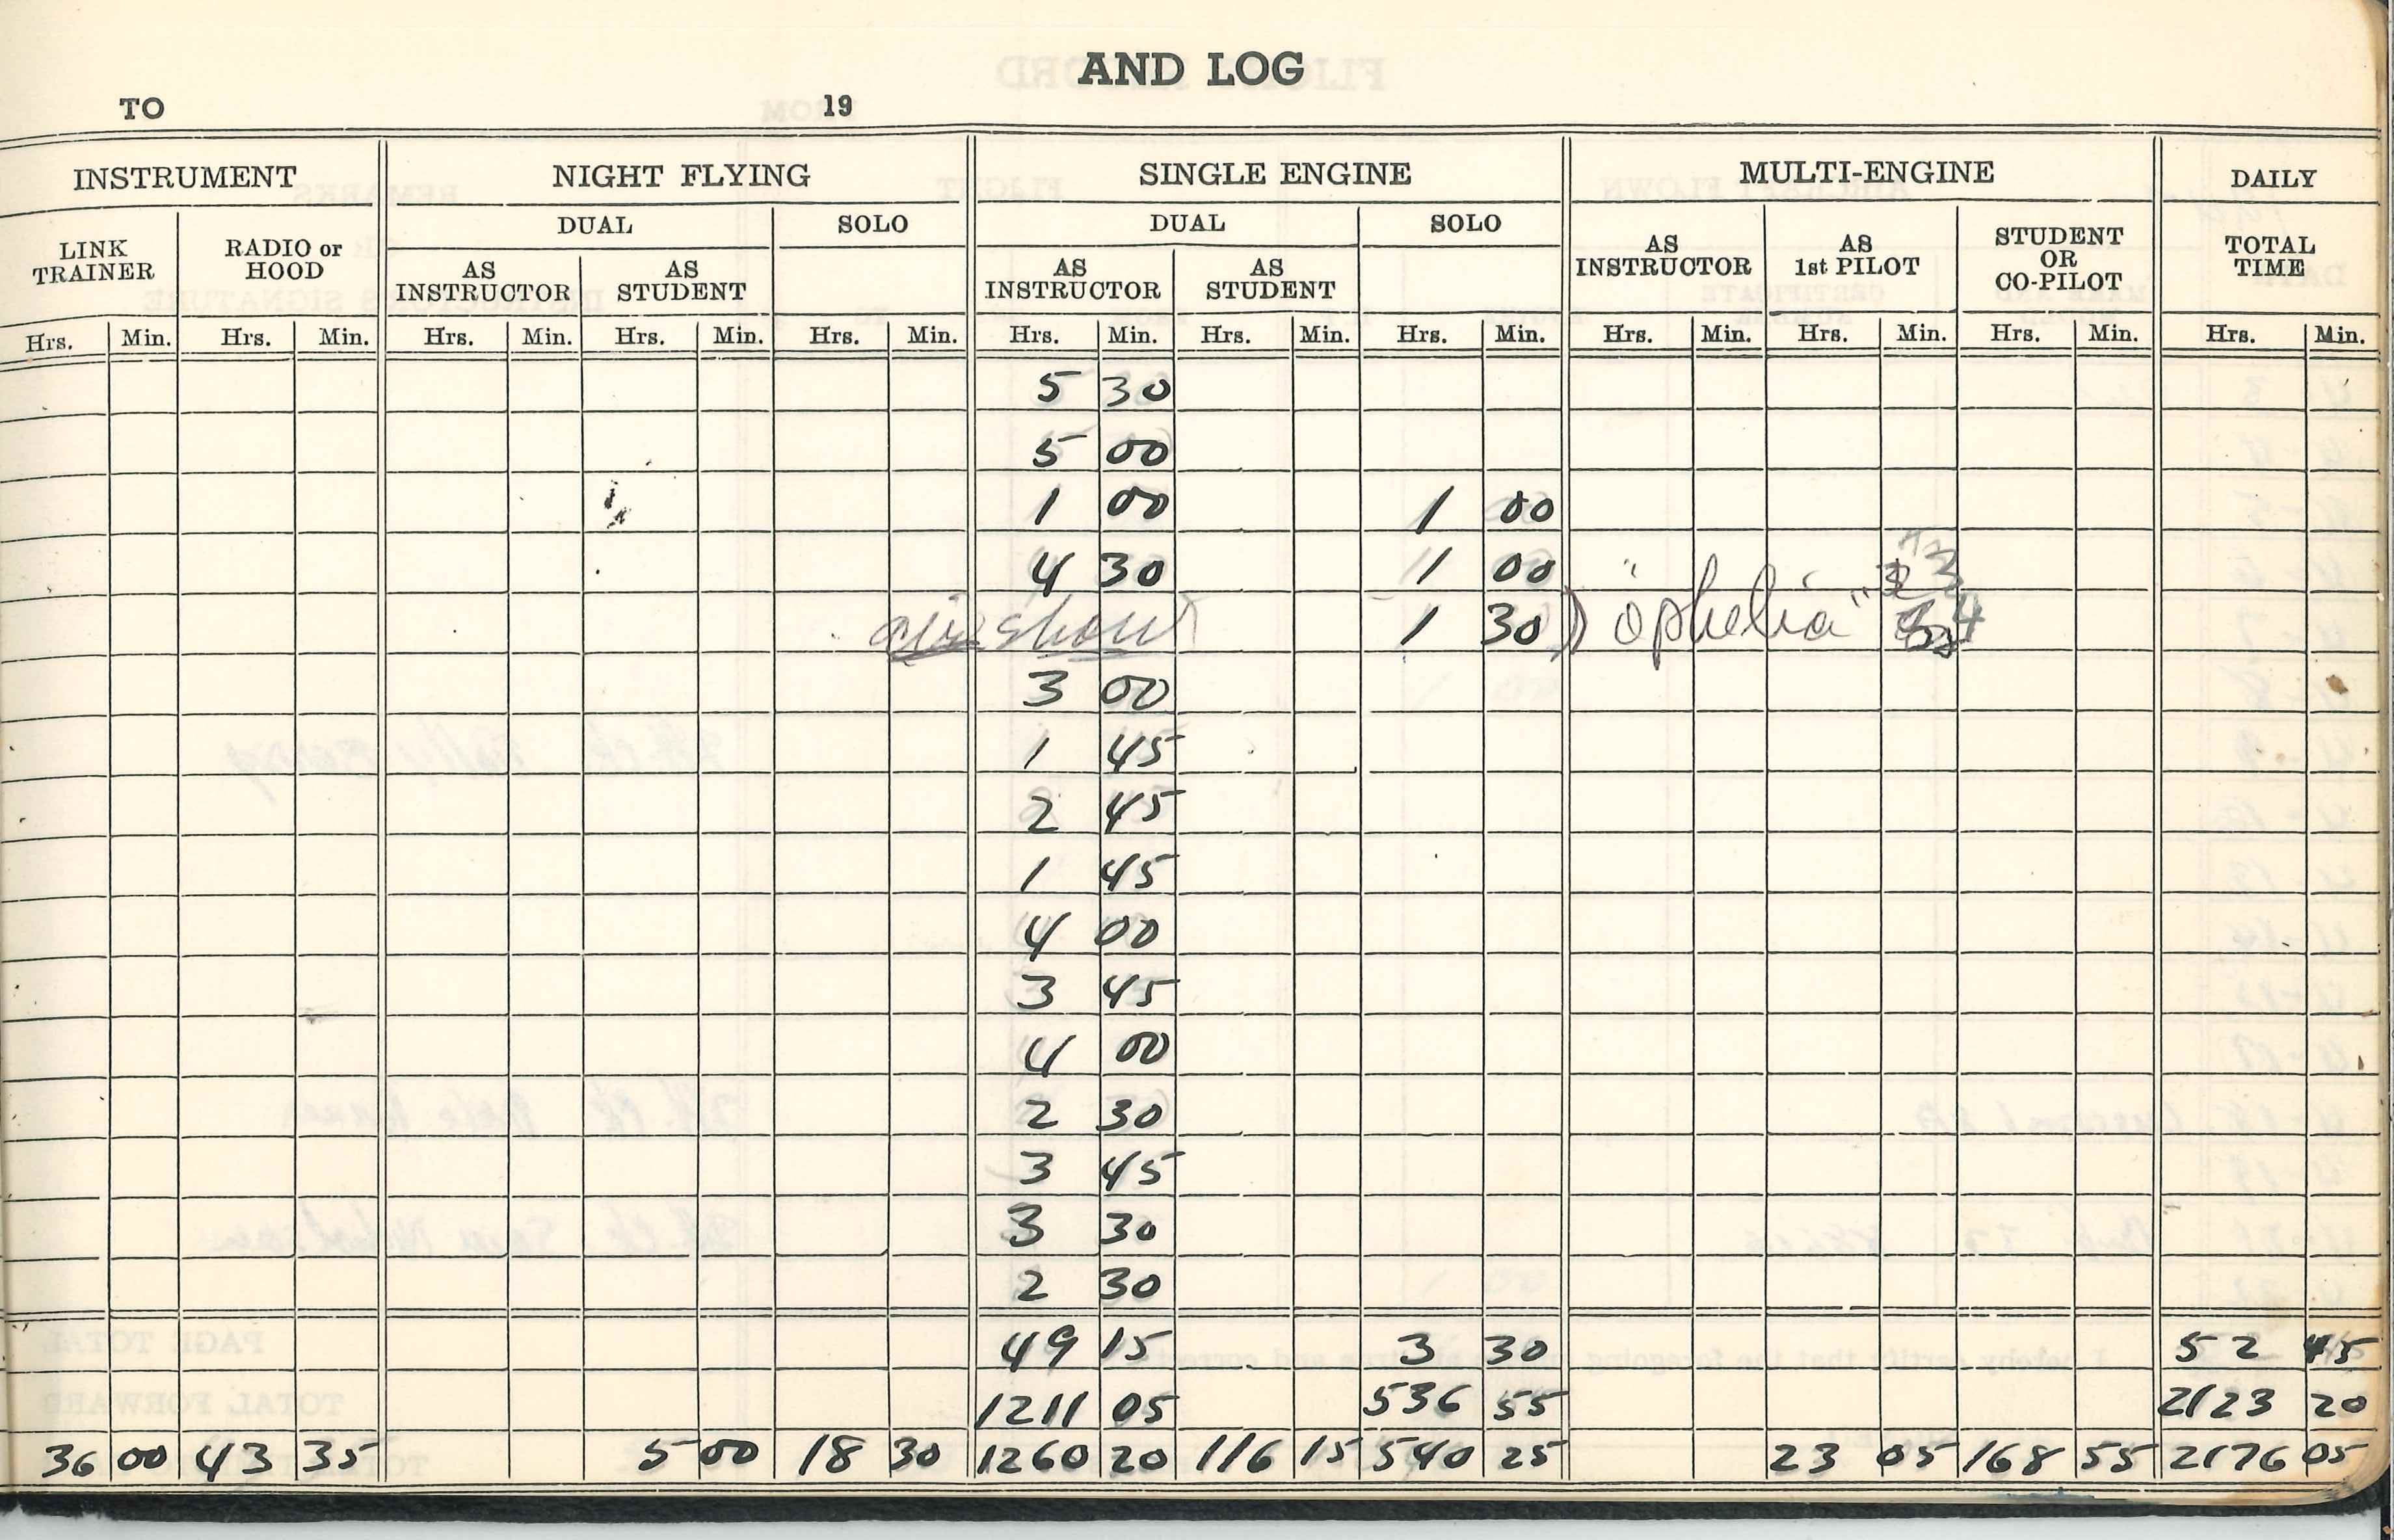 AND LOG
TO 19
INSTRUMENT NIGHT FLYING SINGLE ENGINE MULTI-ENGINE DAILY
DUAL SOLO DUAL SOLO
LINK TRAINER RADIO or HOOD AS INSTRUCTOR AS STUDENT AS INSTRUCTOR AS STUDENT AS INSTRUCTOR AS 1st PILOT STUDENT OR CO-PILOT TOTAL TIME
Hrs. Min. Hrs. Min. Hrs. Min. Hrs. Min. Hrs. Min. Hrs. Min. Hrs. Min. Hrs. Min. Hrs. Min. Hrs. Min. Hrs. Min. Hrs. Min.
5 30
5 00
1 00 1 00
4 30 1 00
air show 1 30 ) "ophelia"
3 00
1 45
2 45
1 45
4 00
3 45
4 00
2 30
3 45
3 30
2 30
49 15 3 30 52 45
1211 05 536 55 2123 20
36 00 43 35 5 00 18 30 1260 20 116 15 540 25 23 05 168 55 2176 05